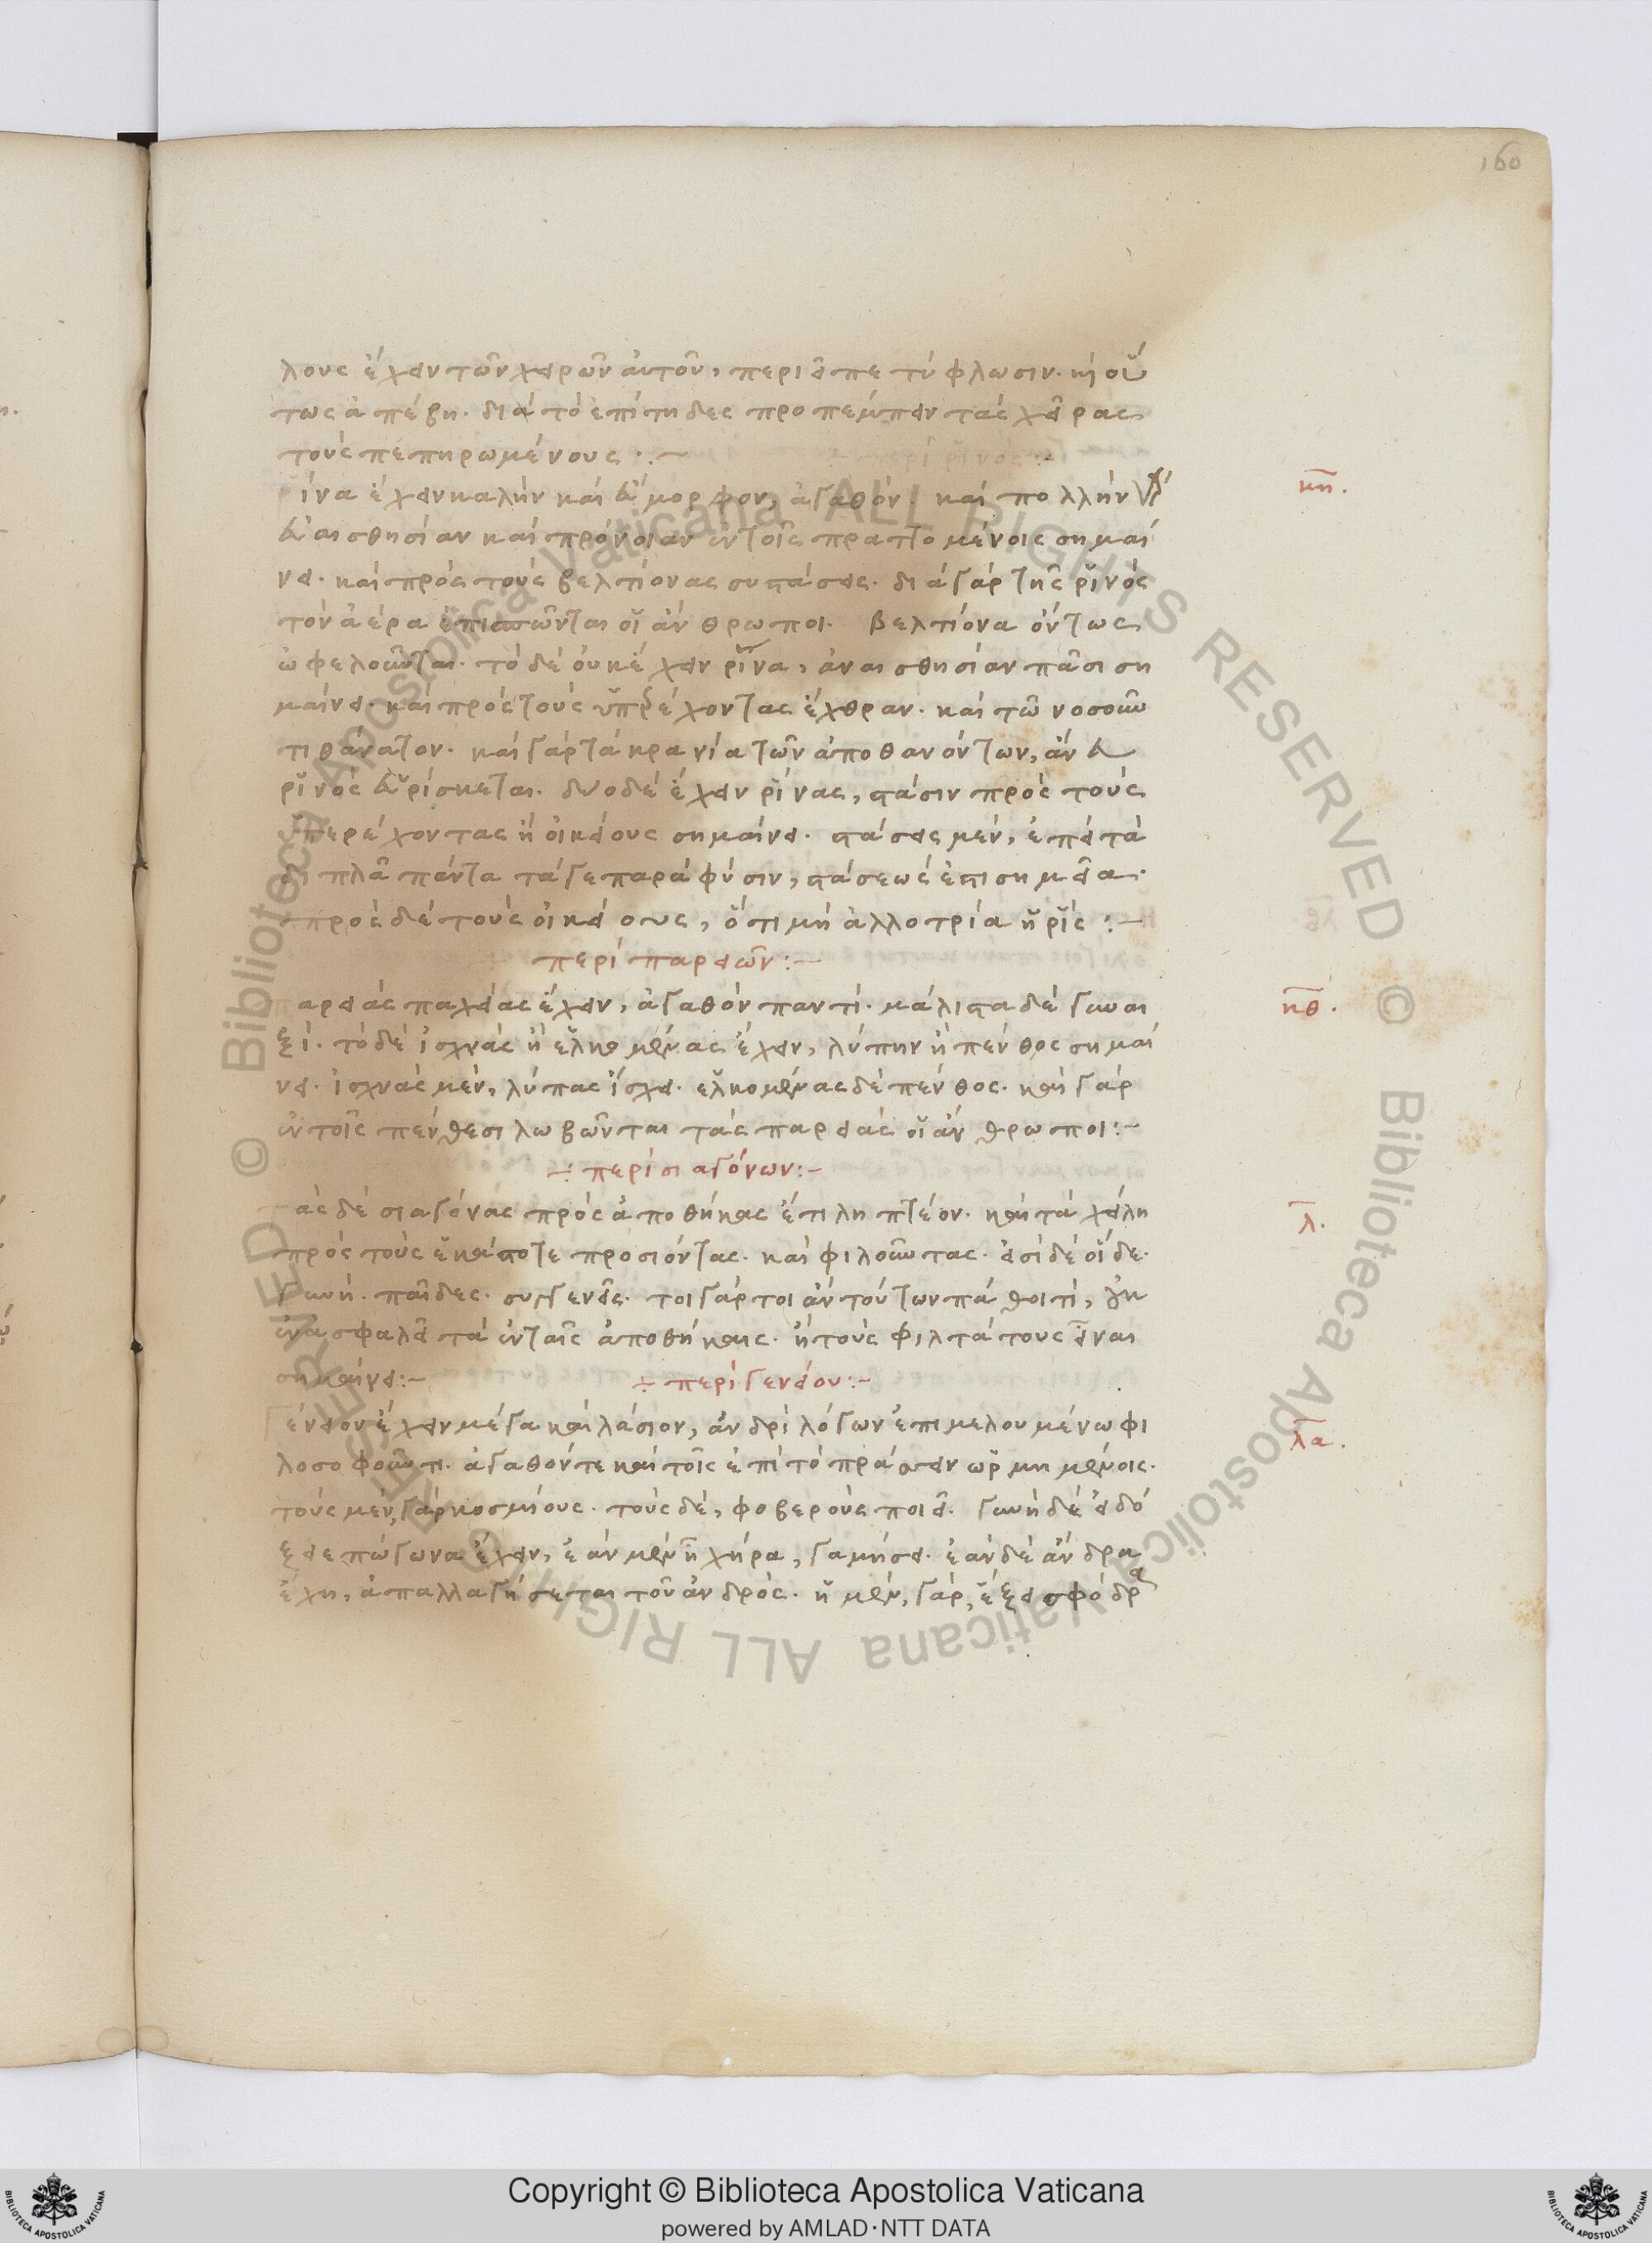 160
λους ἔχειν τῶν χειρῶν αὐτοῦ, περιέπεσε τύφλωσιν. καὶ οὕ
τως ἀπέβη. διὰ τὸ ἐπίτηδες προπέμπειν τὰς χεῖρας
τοὺς πεπηρωμένους :~
περὶ ῥινός :~
ῥίνα ἔχειν καλὴν καὶ εὔμορφον, ἀγαθόν. καὶ πολλὴν γὰρ
εὐαισθησίαν καὶ πρόνοιαν ἐν τοῖς πραττομένοις σημαί
νει. καὶ πρὸς τοὺς βελτίονας συστάσεις. διὰ γὰρ τῆς ῥινὸς
τὸν ἀέρα ἐπισπῶνται οἱ ἄνθρωποι. βελτίονα ὄντως
ὠφελοῦνται. τὸ δὲ οὐκ ἔχειν ῥῖνα, ἀναισθησίαν πᾶσι ση
μαίνει. καὶ πρὸς τοὺς ὑπερέχοντας ἔχθραν. καὶ τῶ νοσοῦν
τι θάνατον. καὶ γὰρ τὰ κρανία τῶν ἀποθανόντων, ἄνευ
ῥινὸς εὑρίσκεται. δύο δὲ ἔχειν ῥίνας, στάσιν πρὸς τοὺς
ὑπερέχοντας ἢ οἰκείους σημαίνει. στάσεις μὲν, ἐπεὶ τὰ
διπλᾶ πάντα τά γε παρὰ φύσιν, στάσεως ἐστι σημεῖα.
πρὸς δὲ τοὺς οἰκείους, ὅτι μὴ ἀλλοτρία ἡ ῥίς :~
περὶ παρειῶν :~
αρειὰς παχείας ἔχειν, ἀγαθὸν παντί. μάλιστα δὲ γυναι
ξί. τὸ δὲ ἰσχνὰς ἢ εἱλκωμένας ἔχειν, λύπην ἢ πένθος σημαί
νει. ἰσχνὰς μὲν, λύπας ἴσχει. εἱλκομένας δὲ πένθος. καὶ γὰρ
ἐν τοῖς πένθεσι λωβῶνται τὰς παρειὰς οἱ ἄνθρωποι :~
÷ περὶ σιαγόνων :~
ὰς δὲ σιαγόνας πρὸς ἀποθήκας ἔτι ληπτέον. καὶ τὰ χείλη
πρὸς τοὺς ἑκάστοτε προσιόντας. καὶ φιλοῦντας. εἰσὶ δὲ οἵδε.
γυνή. παῖδες. συγγενεῖς. τοιγάρτοι ἂν τούτων πάθοι τί, οὐκ
ἐνασφαλεῖ τὰ ἐν ταῖς ἀποθήκαις. ἢ τοὺς φιλτάτους εἶναι
σημαίνει :~ ÷ περὶ γενείου :~
Γένειον ἔχειν μέγα καὶ λάσιον, ἀνδρὶ λόγων ἐπιμελουμένω φι
λοσοφοῦντι. ἀγαθόν τε καὶ τοῖς ἐπὶ τὸ πράσσειν ὡρμημένοις.
τοὺς μὲν, γὰρ κοσμίους. τοὺς δὲ, φοβεροὺς ποιεῖ. γυνὴ δὲ εἰ δό
ξειε πώγωνα ἔχειν, ἐὰν μὲν ἦ χήρα, γαμήσει. ἐὰν δὲ ἄνδρα
ἔχη, ἀπαλλαγήσεται τοῦ ἀνδρός. ἡ μὲν, γάρ, ἕξει σφόδρα
κη.
κθ.
λ.
λα.
© Biblioteca Apostolica Vaticana ALL RIGHTS RESERVED © Biblioteca Apostolica Vaticana ALL RIGHTS RESERVED
Copyright © Biblioteca Apostolica Vaticana
powered by AMLAD·NTT DATA
BIBLIOTECA APOSTOLICA VATICANA
BIBLIOTECA APOSTOLICA VATICANA